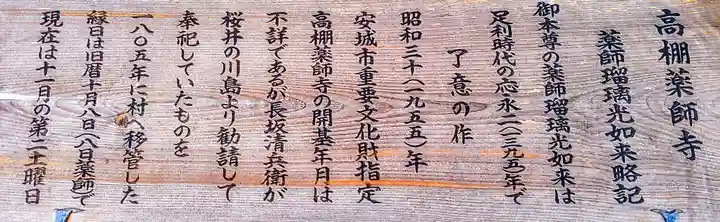 高棚薬師寺
薬師瑠璃光如来略記
御本尊の薬師瑠璃光如来は
足利時代の応永二(一三九五)年で
了意の作
昭和三十(一九五五)年
安城市重要文化財指定
高棚薬師寺の開基年月は
不詳であるが長坂清兵衛が
桜井の川島より勧請して
奉祀していたものを
一八〇五年に村へ移管した
縁日は旧暦十月八日(八日薬師)で
現在は十一月の第二土曜日